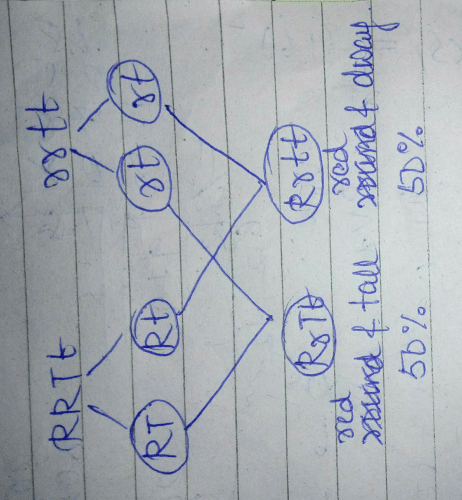 RRTt rrtt
RT Rt rt rt
RrTt Rrtt
red red
round & tall round & dway
50% 50%